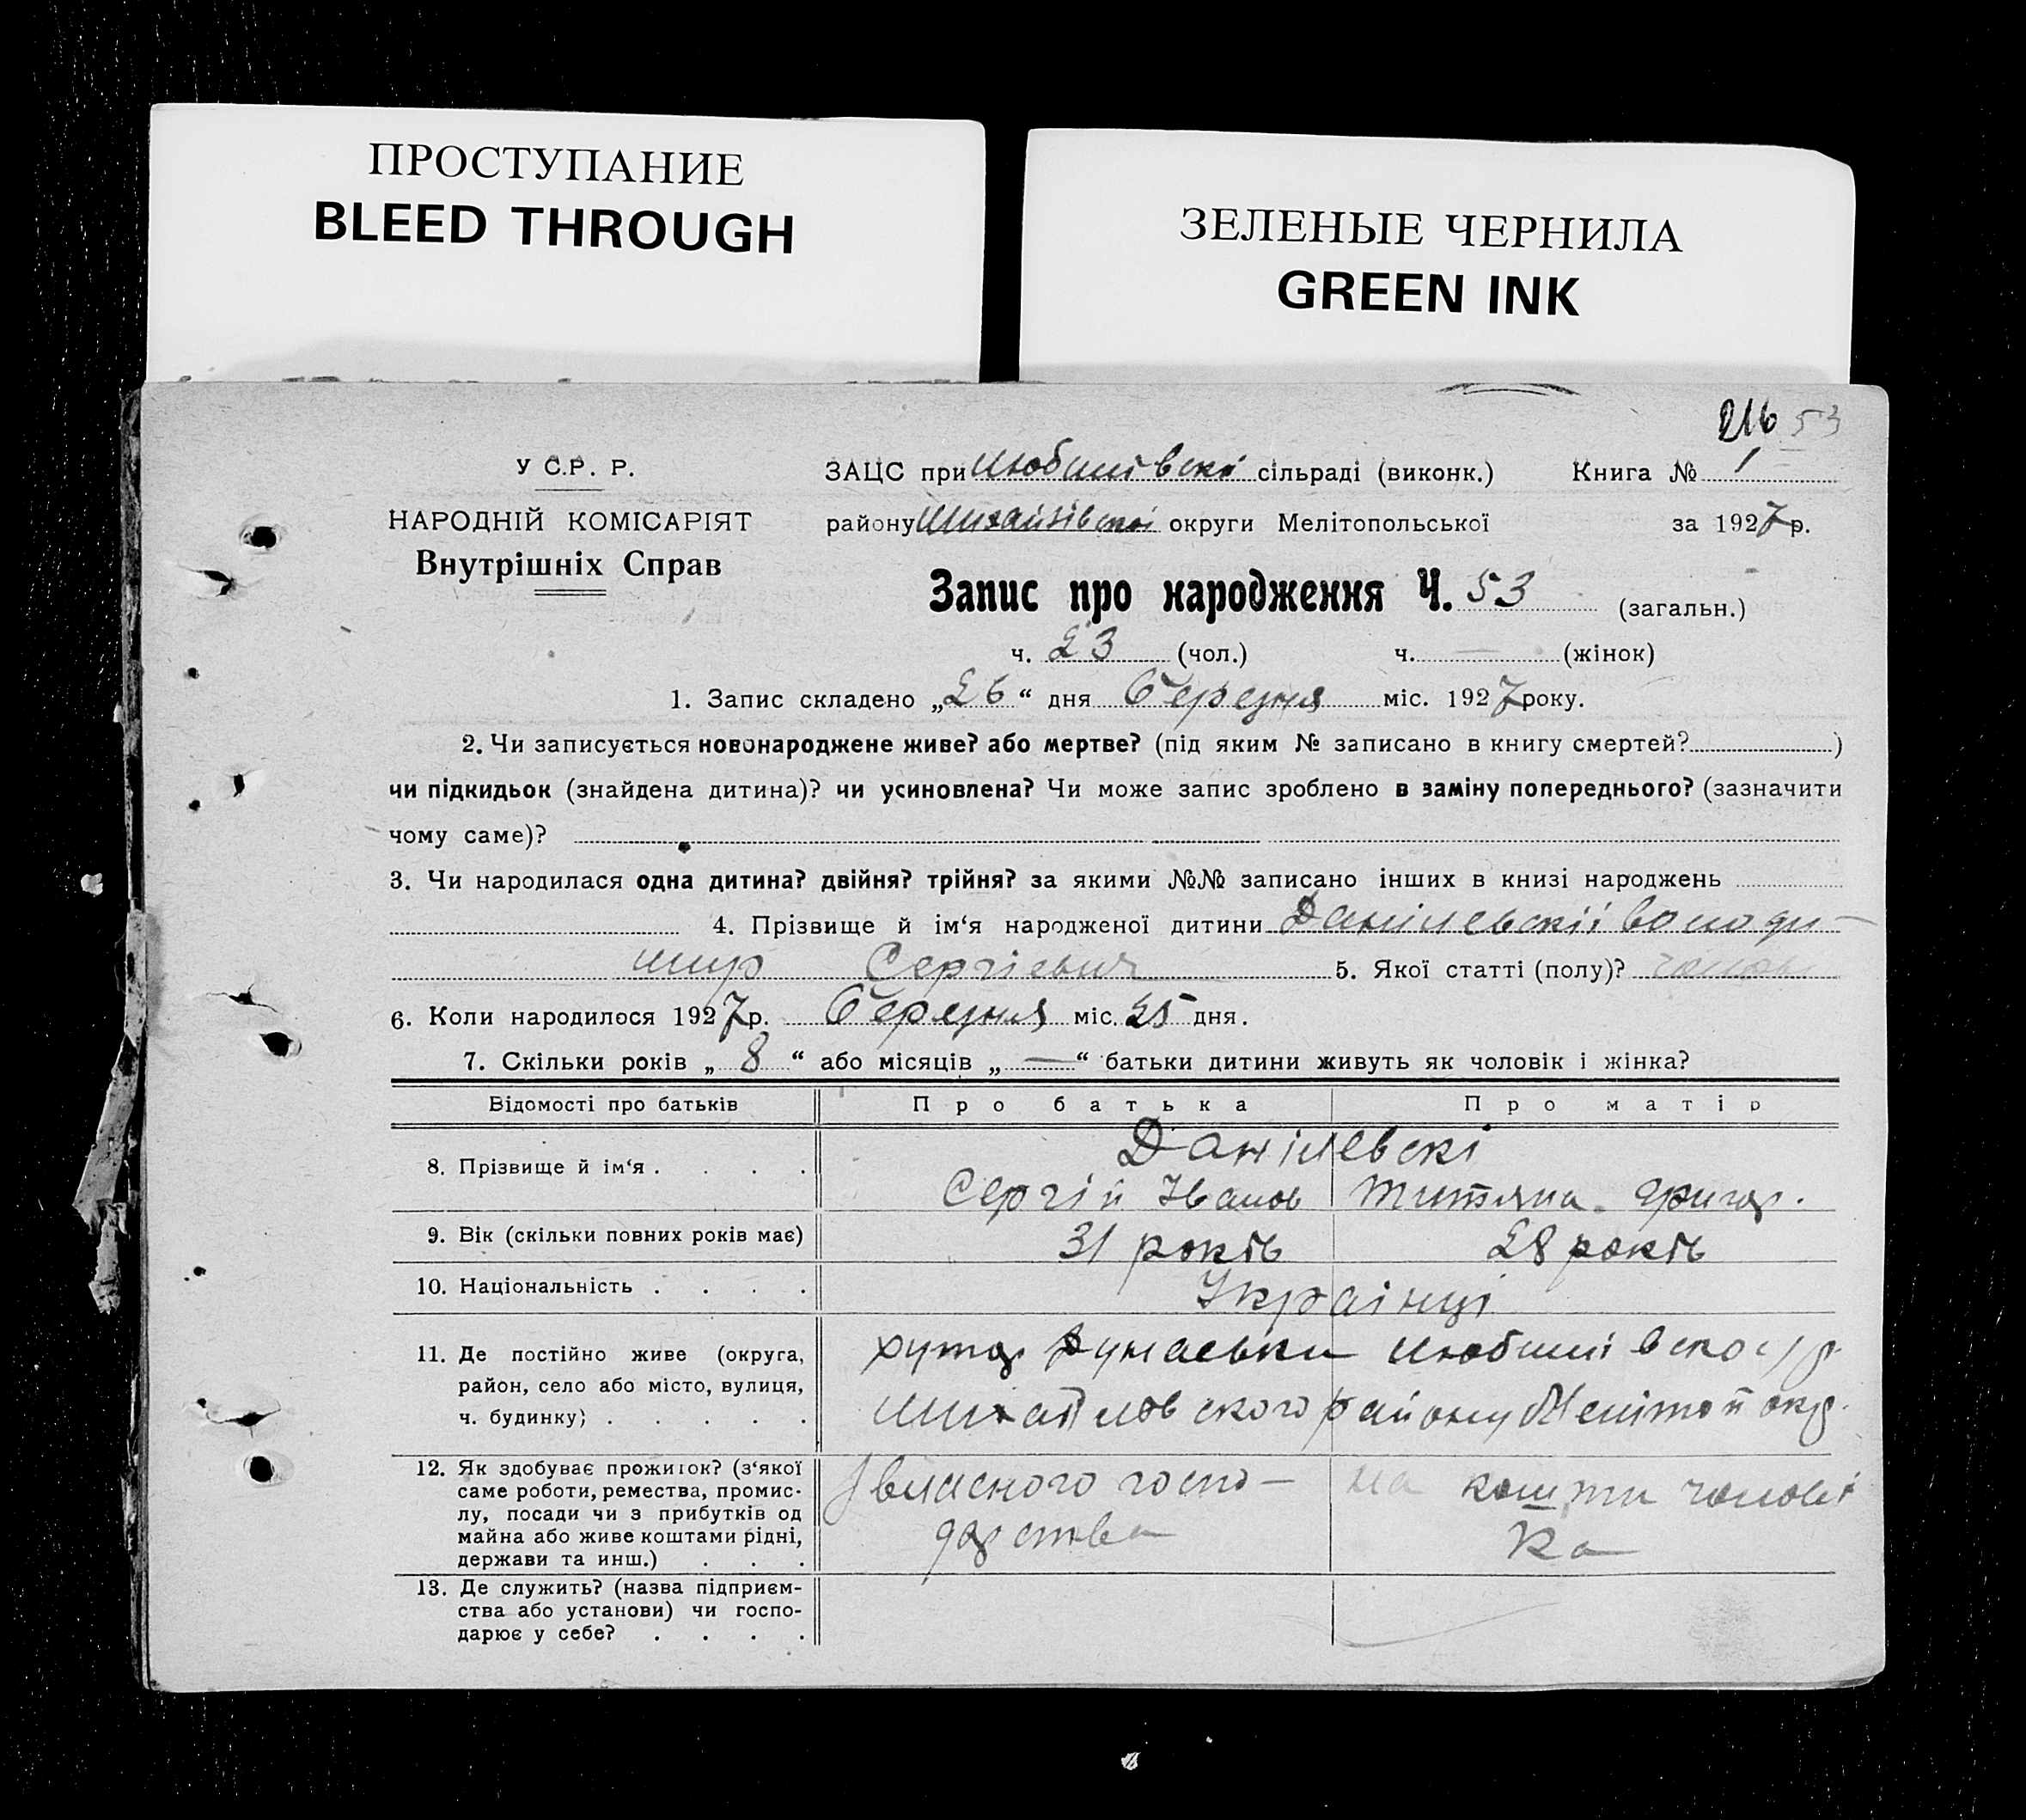 ПРОСТУПАНИЕ
BLEED THROUGH
ЗЕЛЕНЫЕ ЧЕРНИЛА
GREEN INK
216 53
У С.Р. Р.
НАРОДНІЙ КОМІСАРІЯТ
Внутрішніх Справ
ЗАЦС при Любимівскі сільраді (виконк.) Книга № 1
району округи Мелітопольської за 1927 р.
Запис про народження Ч. 53 (загальн.)
ч. 23 (чол.) ч. — (жінок)
1. Запис складено „26“ дня Березня міс. 1927 року.
2. Чи записується новонароджене живе? або мертве? (під яким № записано в книгу смертей? )
чи підкидьок (знайдена дитина)? чи усиновлена? Чи може запис зроблено в заміну попереднього? (зазначити
чому саме)?
3. Чи народилася одна дитина? двійня? трійня? за якими №№ записано інших в книзі народжень
4. Прізвище й ім‘я народженої дитини Данілевскіі Володи-
мир Сергієвич 5. Якої статті (полу)? чолов
6. Коли народилося 1927 р. Березня міс. 25 дня.
7. Скільки років „ 8 “ або місяців „ — “ батьки дитини живуть як чоловік і жінка?
Відомості про батьків Про батька Про матір
Данілевскі
8. Прізвище й ім‘я . . . . Сергій Іванов Титяна Григор.
9. Вік (скільки повних років має) 31 років 28 років
10. Національність . . . . Українці
11. Де постійно живе (округа, район, село або місто, вулиця, ч. будинку) . . . . .
хутор Любимівско с/р
Михайловского району Мелітоп окр.
12. Як здобуває прожиток? (з‘якої саме роботи, ремества, промислу, посади чи з прибутків од майна або живе коштами рідні, держави та инш.) . . .
З власного госпо- на кошти чоловi
дарства ка
13. Де служить? (назва підприєм-
ства або установи) чи госпо-
дарює у себе? . . . .